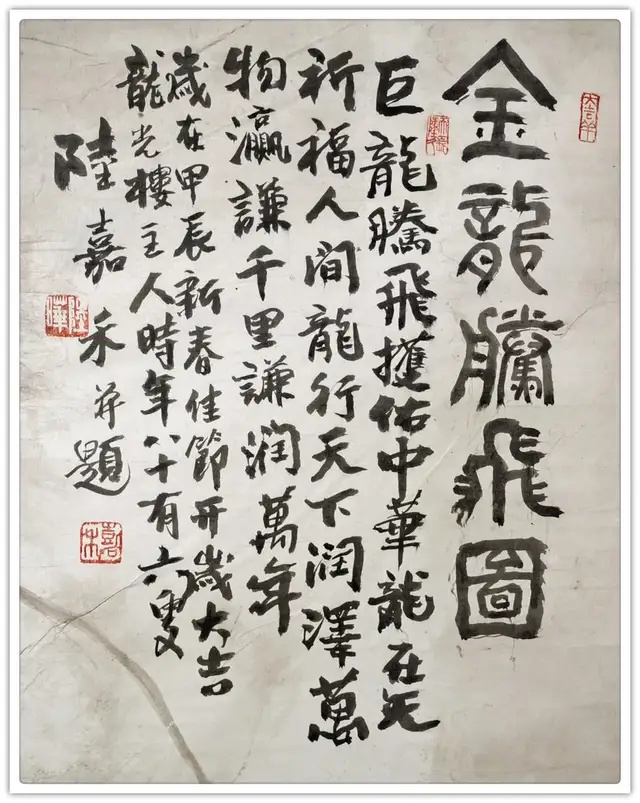 大吉羊
金龍騰飛圖
巨龍騰飛護佑中華龍在天
祈福人間龍行天下潤澤萬
物瀛謙千里謙潤萬年
歲在甲辰新春佳節开歲大吉
龍光樓主人時年八十有六叟
陸嘉禾并題
嘉禾